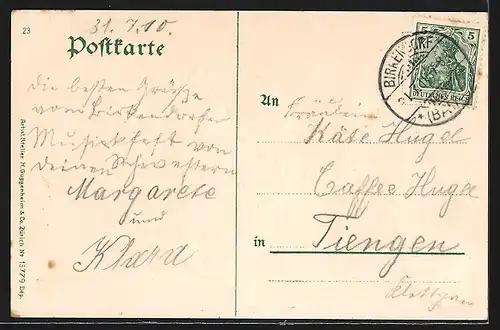 23
31.7.10.
Postkarte
Die besten Grüße
vom Birkendorfer
Musikfest von
deinen Schwestern
Margarete
und
Klara
An
Fräulein
Käte Hugel
Caffee Hugel
in Tiengen
Klettgau
5 5
DEUTSCHES REICH
BIRKENDORF
*(BA
Artist. Atelier H. Guggenheim & Co., Zürich, Nr. 15779 Dep.